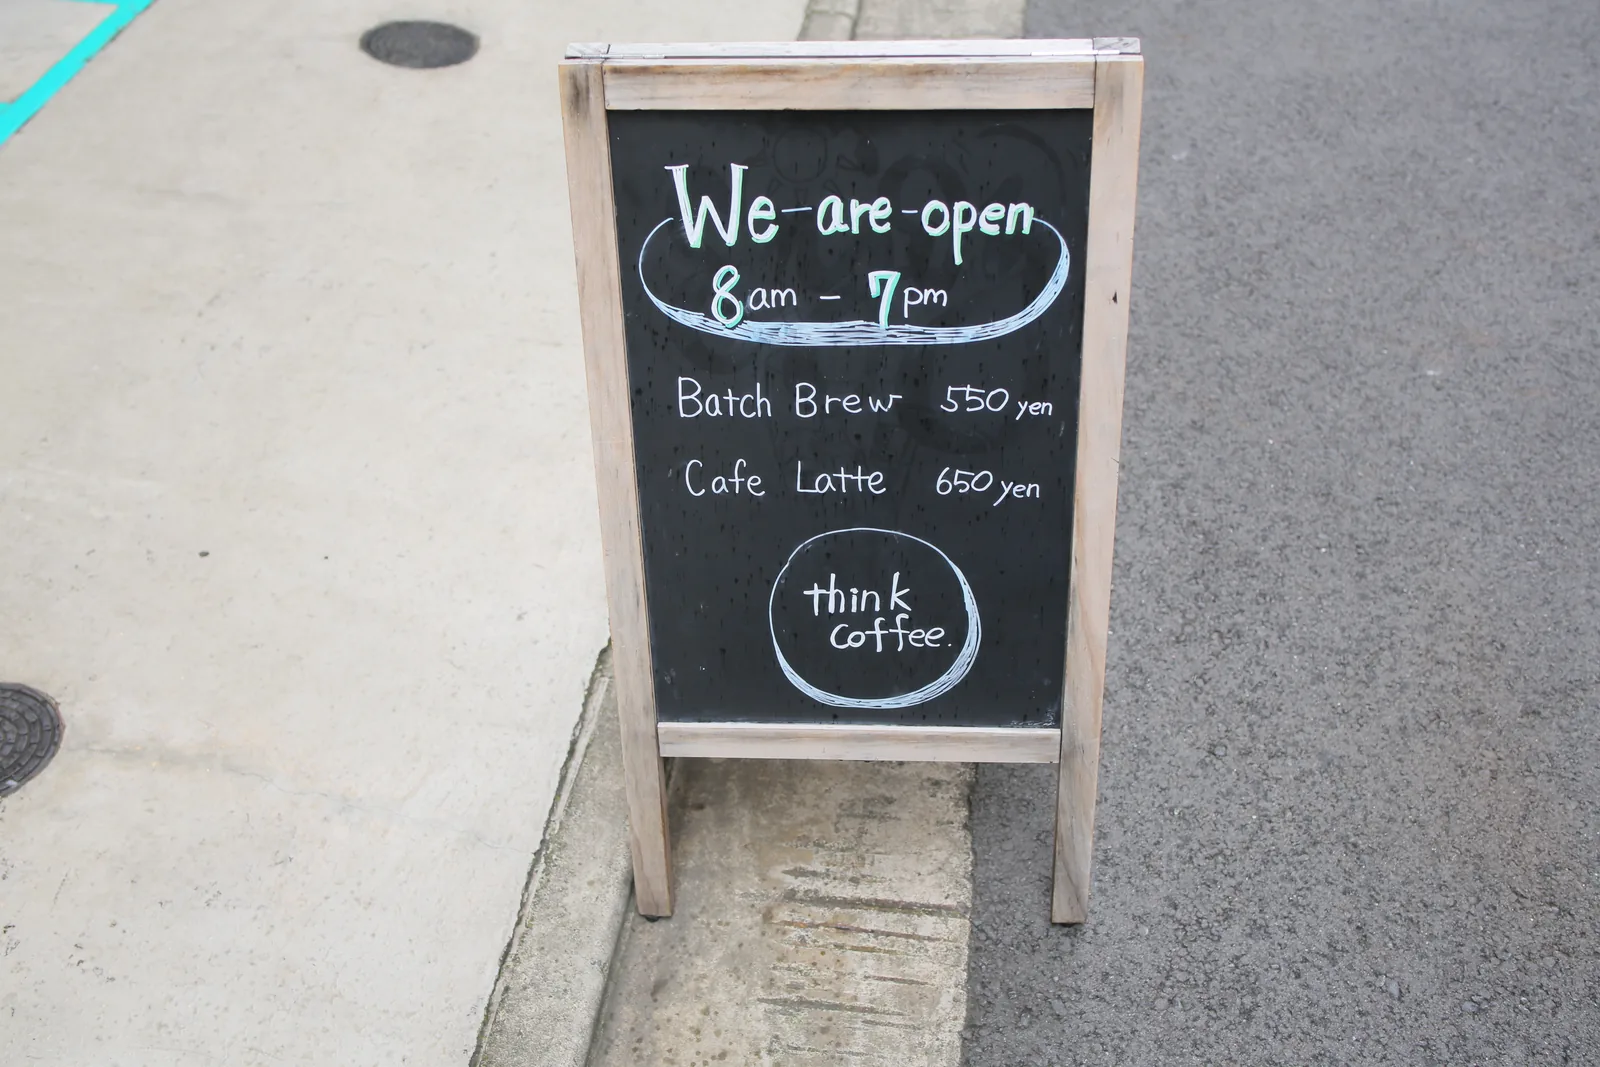 We are open
8am - 7pm
Batch Brew 550 yen
Cafe Latte 650 yen
think
coffee.